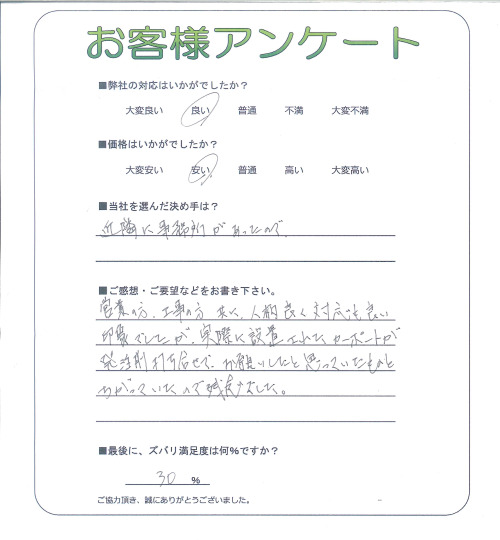 お客様アンケート
■弊社の対応はいかがでしたか？
大変良い 良い 普通 不満 大変不満
■価格はいかがでしたか？
大変安い 安い 普通 高い 大変高い
■当社を選んだ決め手は？
近隣に事務所があったので。
■ご感想・ご要望などをお書き下さい。
営業の方、工事の方 共に、人柄良く対応も良い
印象でしたが、実際に設置されたカーポートが
発注前打ち合せで、お願いしたと思っていたものと
ちがっていたので残念でした。
■最後に、ズバリ満足度は何％ですか？
30 ％
ご協力頂き、誠にありがとうございました。